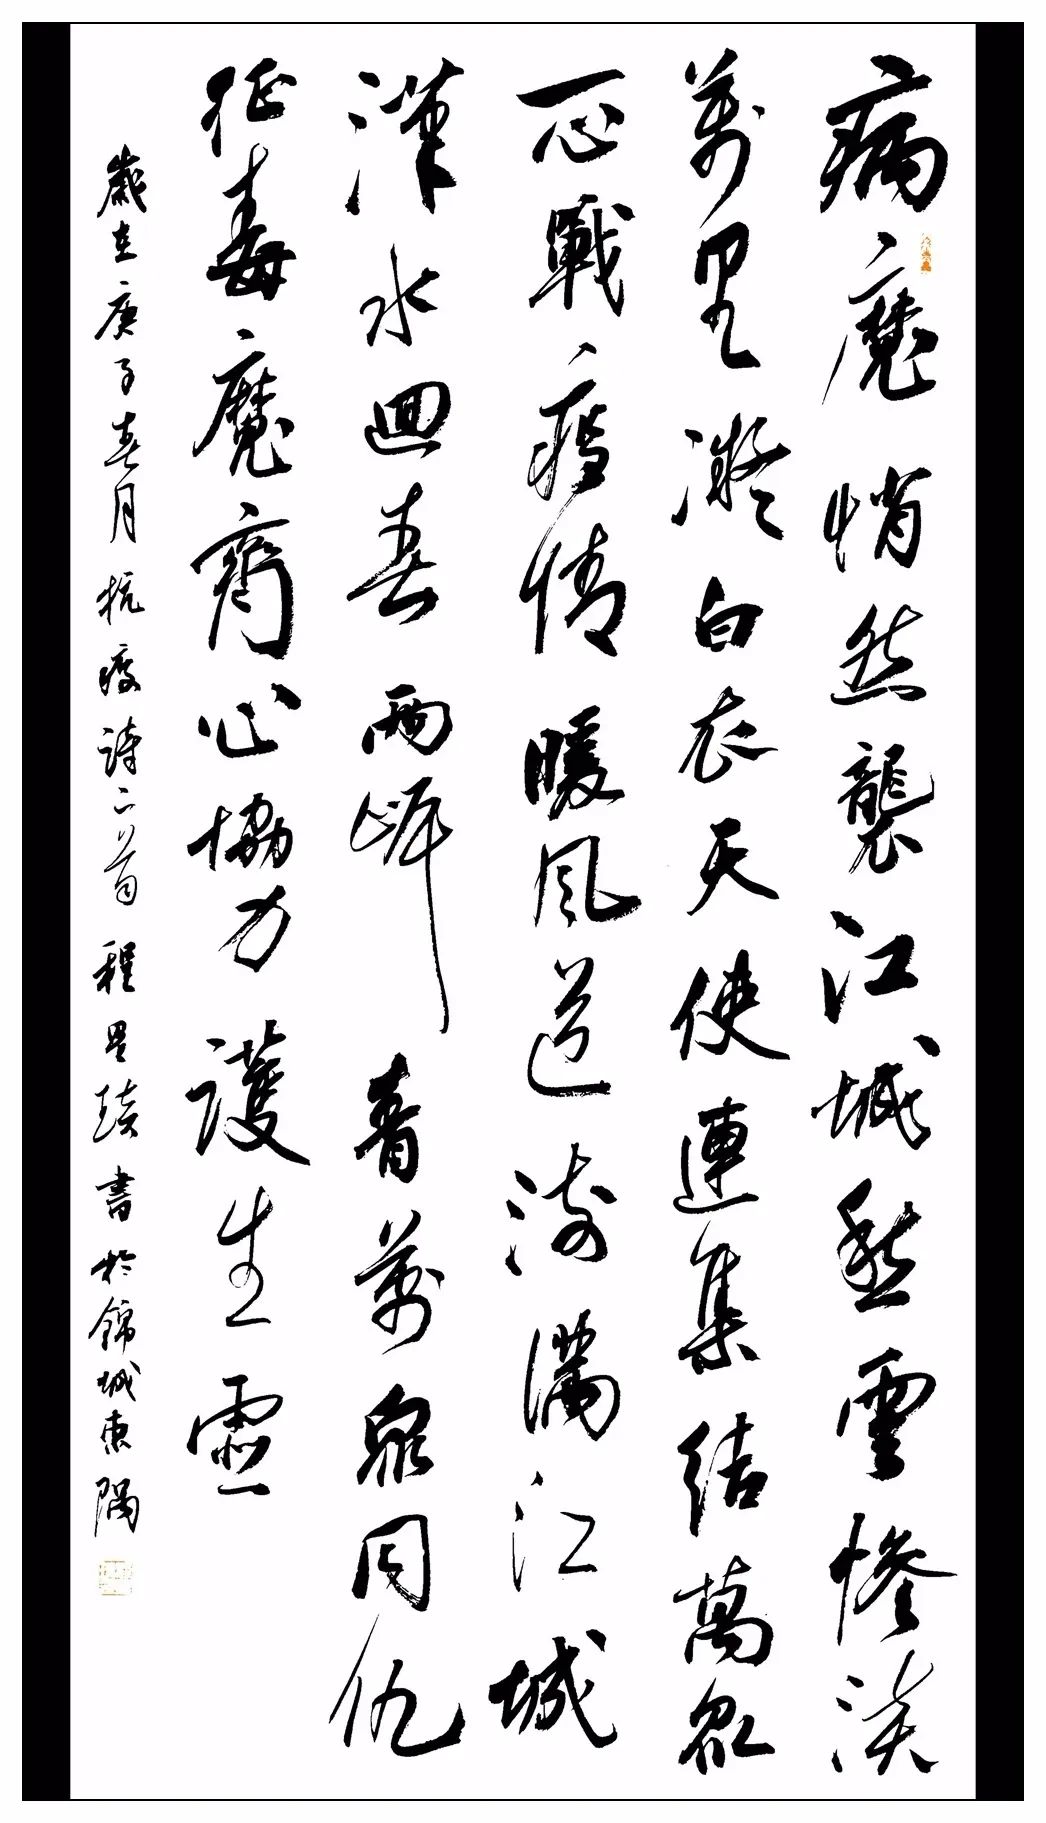 病魔悄然襲江城愁雲慘淡
萬里凝白衣天使連集結萬眾
一心戰疫情暖風送湯滿江城
漢水迴春兩岸青萬眾同仇
征毒魔齊心協力護生靈
歲在庚子春月抗疫詩二首程星書於錦城東隅